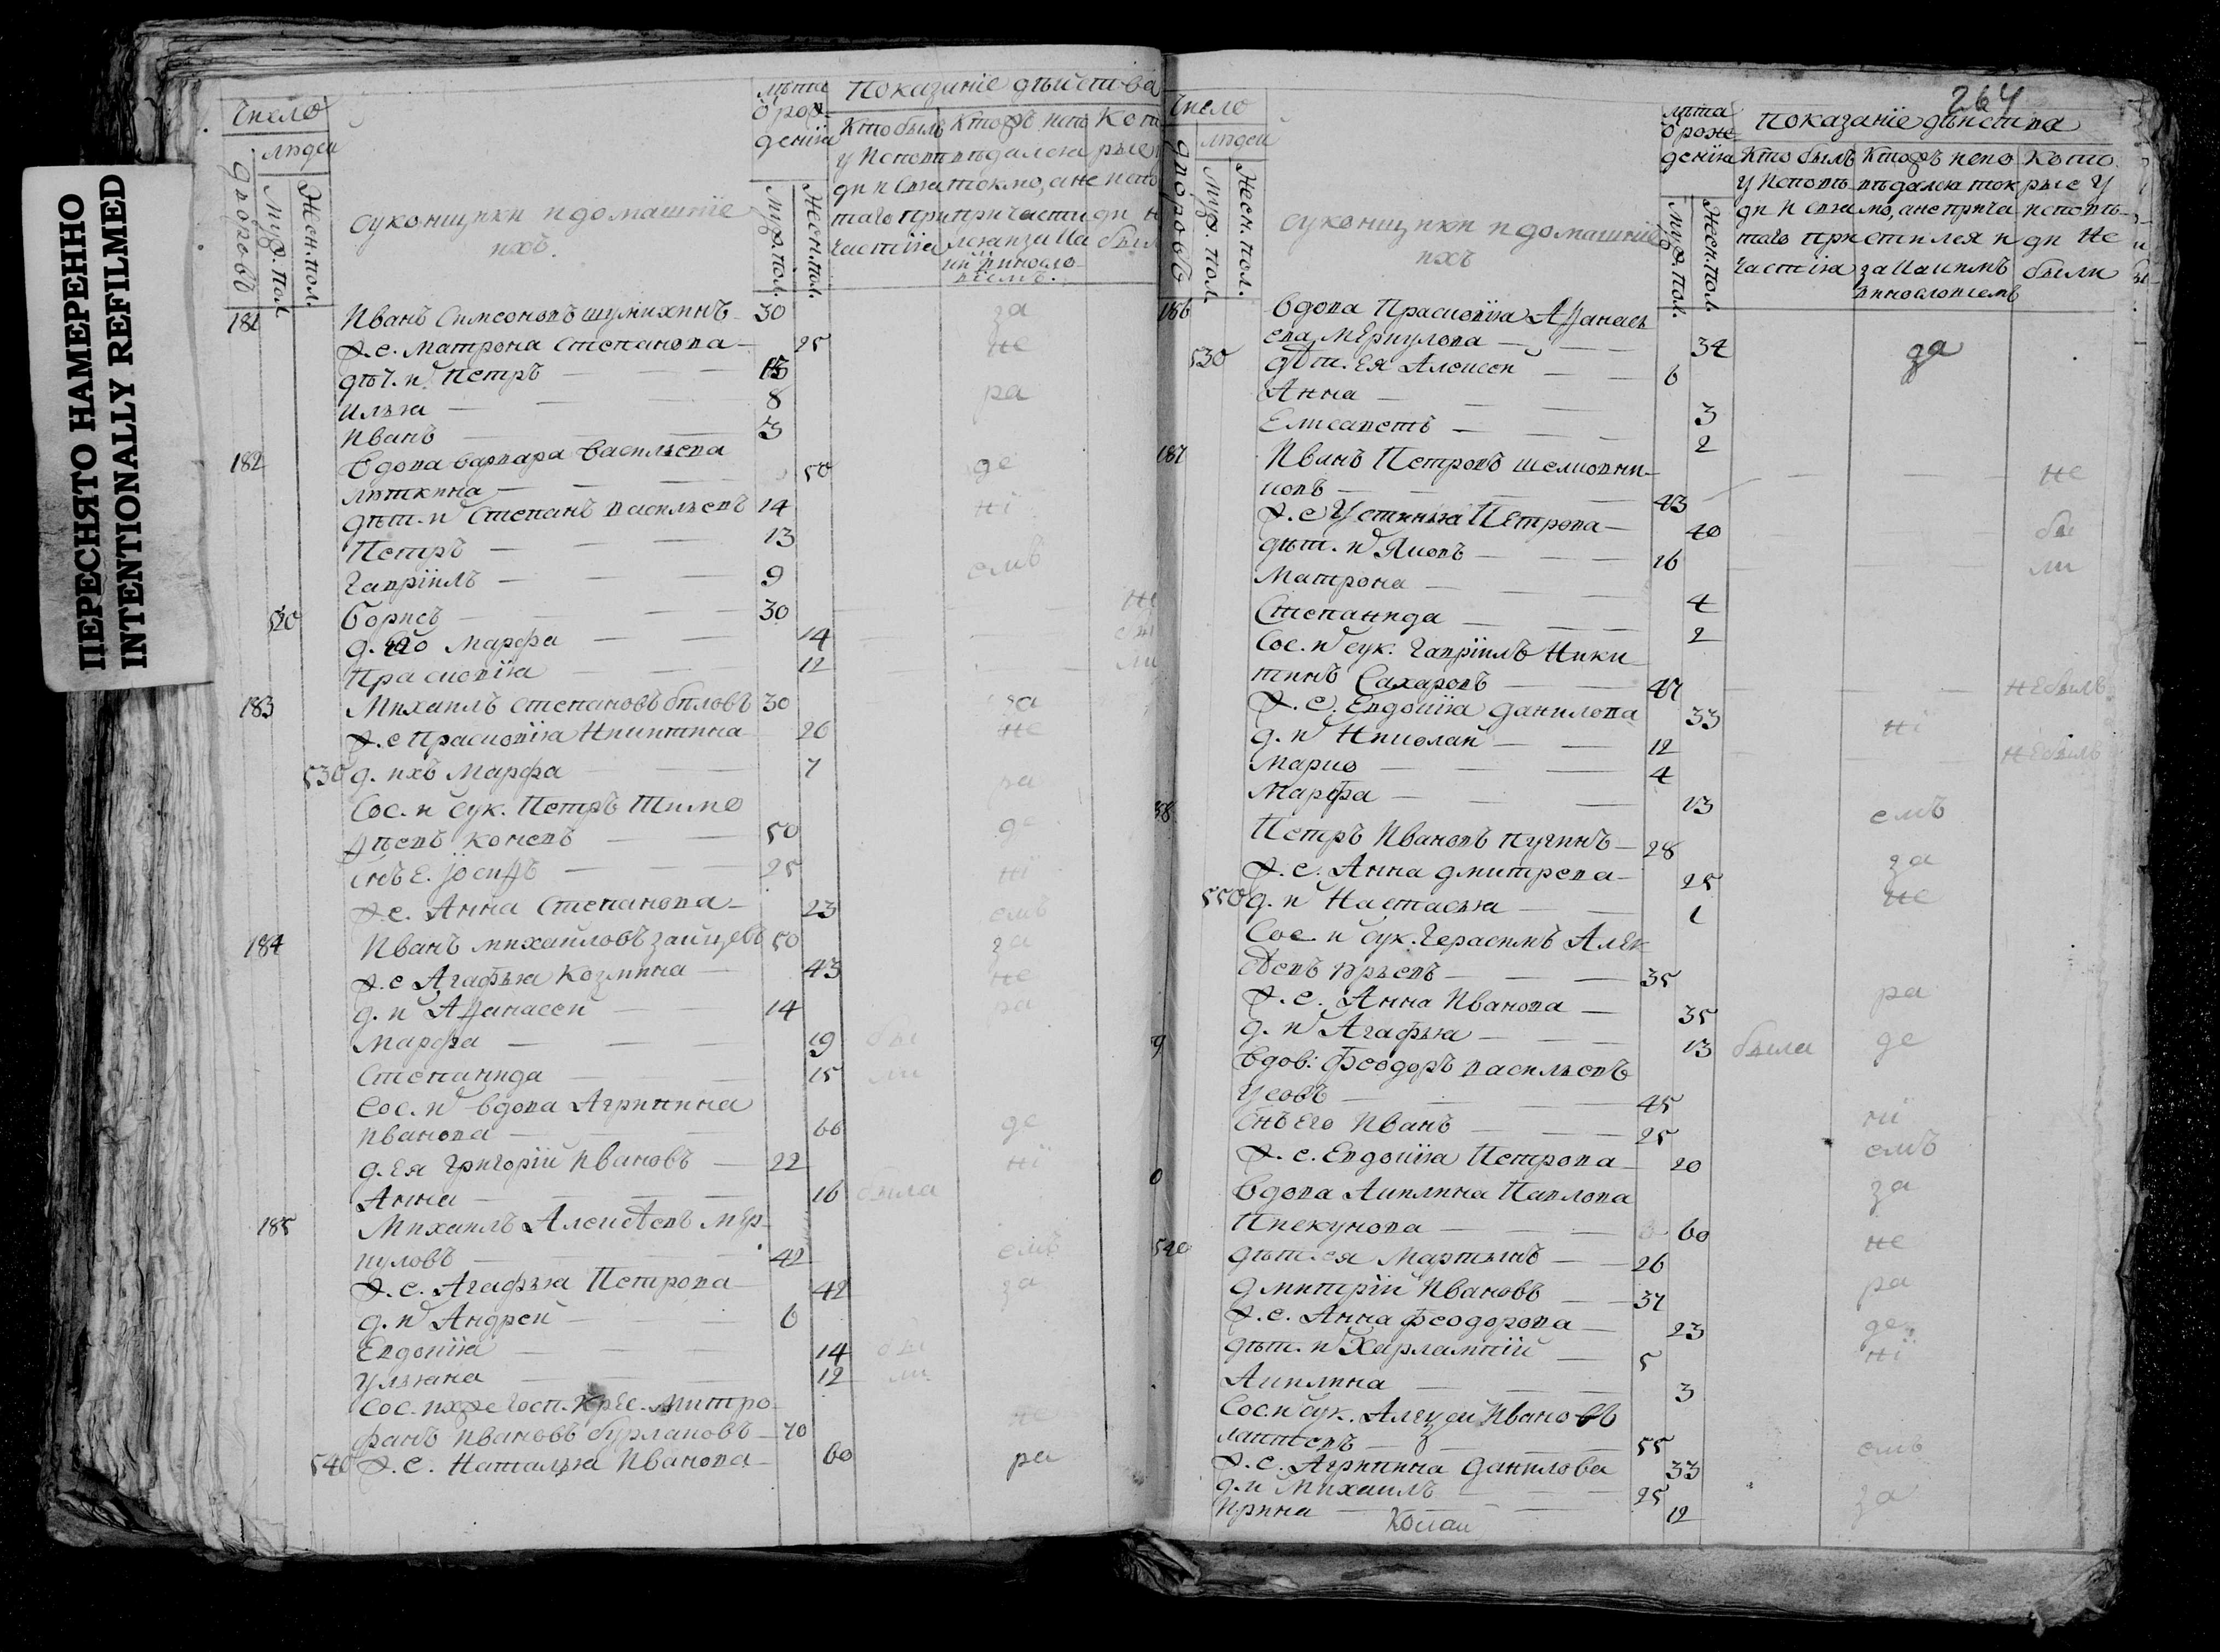 ПЕРЕСНЯТО НАМЕРЕННО
INTENTIONALLY REFILMED
Число
людей
дворовъ
Муж. пол.
Жен. пол.
суконщики и домашніе
ихъ.
лѣта
о рож
денія
Муж. пол.
Жен. пол.
Показаніе дѣйства
Кто былъ
у исповѣ
ди и свя
таго при
частія
181 Иванъ Симеоновъ шумихинъ 30 за
ж. е. Матрона Степанова 25 не
дѣт. и Петръ ра
илья 8
иванъ 3
182 Вдова варвара васильева
50 де
дѣт. и Степанъ васильевъ 14 ні
Петръ 13
Гавріилъ 9 емъ
520 борисъ 30
д. его Марфа 14
Прасковія 12 ли
183 Михаилъ степановъ бѣловъ 30 за
ж. е Прасковія Никитина 26 не
530 д. ихъ Марфа 7 ра
Сос. и сук. Петръ Тимо
фѣевъ коневъ 50 де
снъ е. Іосифъ 25 ні
ж. е. Анна Степанова 23 емъ
184 Иванъ михайловъ зайцевъ 50 за
ж. е Агафья Козмина 43 не
д. и Афанасей 14 ра
Марфа 19 бы
Степанида 15 ли
Сос. и вдова Агрипина
иванова 66 де
д. Ея Григорій ивановъ 22 ні
Анна 16 была
185 Михаилъ Алексѣевъ мер
куловъ 42 емъ
ж. е. Агафья Петрова 42 за
д. и Андрей 6
Евдокія 14 бы
Ульяна 12 ли
Сос. ихже госп. крес. митро
фанъ ивановъ бурлаковъ 70 не
540 ж. е. Наталья иванова 60 ра
264
Число
людей
дворовъ
Муж. пол.
Жен. пол.
суконщики и домашніе
ихъ
лѣта
о рож
денія
Муж. пол.
Жен. пол.
Показаніе дѣйства
Кто былъ
у исповѣ
ди и свя
таго при
частія
Кто жъ испо
вѣдался ток
мо, а не прича
стился и
за каимъ
винословіемъ
кото
рые у
исповѣ
ди не
были
186 вдова Прасковія Афанась
ева меркулова 34 да
530 дѣт. ея Алексей 6
Анна 3
Елисаветъ 2
187 Иванъ Петровъ шелковни
ковъ 43 не
ж. е Устинья Петрова 40 бы
дѣт. и Яковъ 16 ли
Матрона 4
Степанида 2
Сос. и сук. Гавріилъ Ники
тинъ Сахаровъ 47 небылъ
ж. е. Евдокія данилова 33 ні
д. и Николай 12 небылъ
Марко 4
Марфа 13 емъ
Петръ ивановъ пугинъ 28
ж. е. Анна дмитрева 25 за
550 д. и Настасья 1 не
Сос. и сук. Герасимъ Алек
35
ж. е. Анна иванова 35 ра
д. и Агафья 13 была де
вдов: Феодоръ васильевъ
Усовъ 45
снъ его иванъ 25 ні
ж. е. Евдокія Петрова 20 емъ
Вдова Акилина Павлова за
60
540 дѣт. ея Мартынъ 26 не
дмитрій ивановъ 37 ра
ж. е. Анна Феодорова 23 де
дѣт. и Харлампій 5 ні
Акилина 3
Сос. и сук. Алексеи ивановъ
лаптевъ 55
ж. е. Агрипина данилова 33 емъ
д. и Михаилъ 25
ирина 12 за